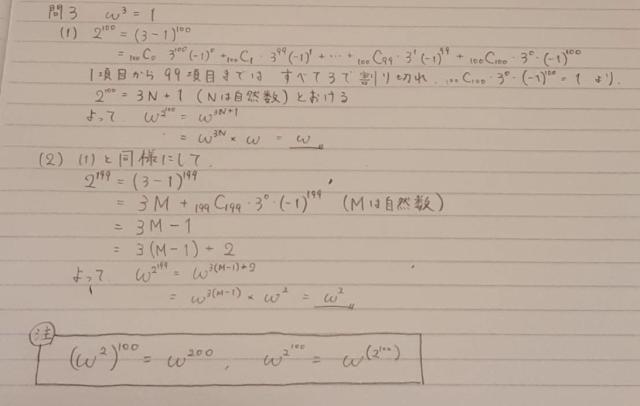 問3 ω³ = 1
(1) 2¹⁰⁰ = (3-1)¹⁰⁰
= ₁₀₀C₀ 3¹⁰⁰(-1)⁰ + ₁₀₀C₁・3⁹⁹(-1)¹ + … + ₁₀₀C₉₉・3¹(-1)⁹⁹ + ₁₀₀C₁₀₀・3⁰・(-1)¹⁰⁰
1項目から99項目までは すべて3で割り切れ、₁₀₀C₁₀₀・3⁰・(-1)¹⁰⁰ = 1 より、
2¹⁰⁰ = 3N + 1 (Nは自然数) とおける
よって ω^2¹⁰⁰ = ω^3N+1
= ω^3N × ω = ω
(2) (1)と同様にして、
2¹⁹⁹ = (3-1)¹⁹⁹
= 3M + ₁₉₉C₁₉₉・3⁰・(-1)¹⁹⁹ (Mは自然数)
= 3M - 1
= 3(M-1) + 2
よって、 ω^2¹⁹⁹ = ω^3(M-1)+2
= ω^3(M-1) × ω² = ω²
注
(ω²)¹⁰⁰ = ω²⁰⁰, ω^2¹⁰⁰ = ω^(2¹⁰⁰)